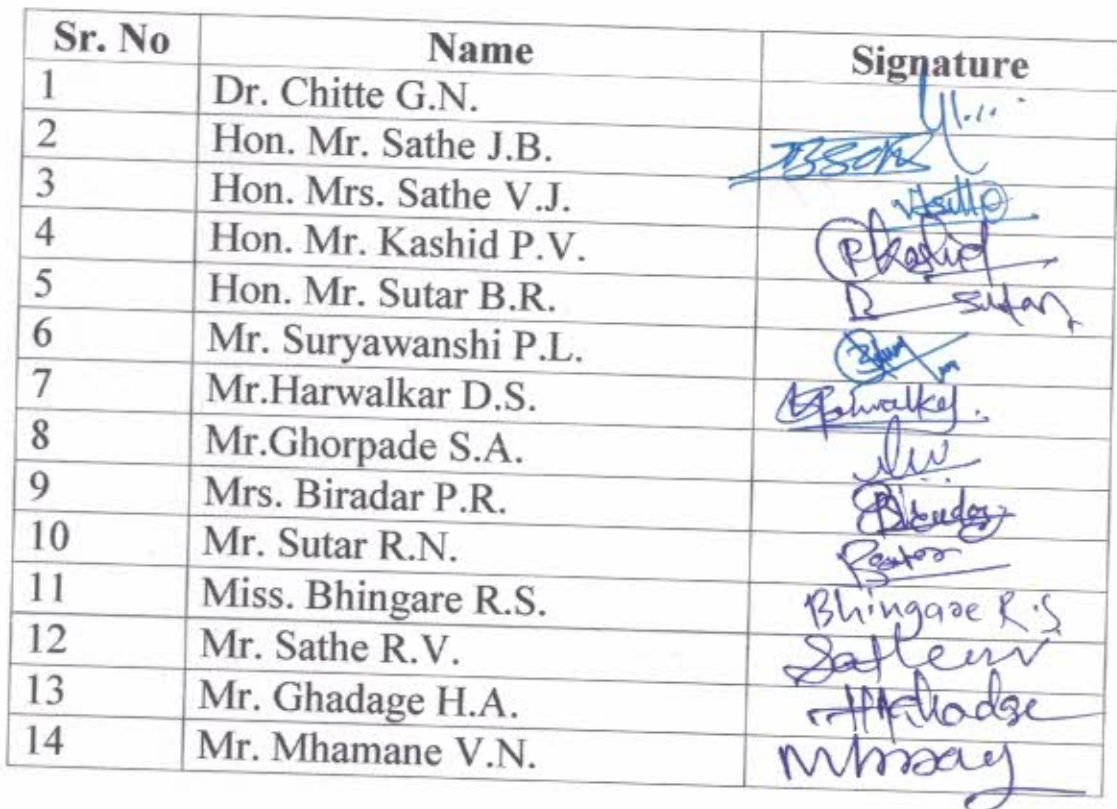 Sr. No Name Signature
1 Dr. Chitte G.N.
2 Hon. Mr. Sathe J.B.
3 Hon. Mrs. Sathe V.J.
4 Hon. Mr. Kashid P.V. PKashid
5 Hon. Mr. Sutar B.R. Sutar
6 Mr. Suryawanshi P.L.
7 Mr.Harwalkar D.S.
8 Mr.Ghorpade S.A.
9 Mrs. Biradar P.R.
10 Mr. Sutar R.N.
11 Miss. Bhingare R.S. Bhingare R.S
12 Mr. Sathe R.V.
13 Mr. Ghadage H.A.
14 Mr. Mhamane V.N.